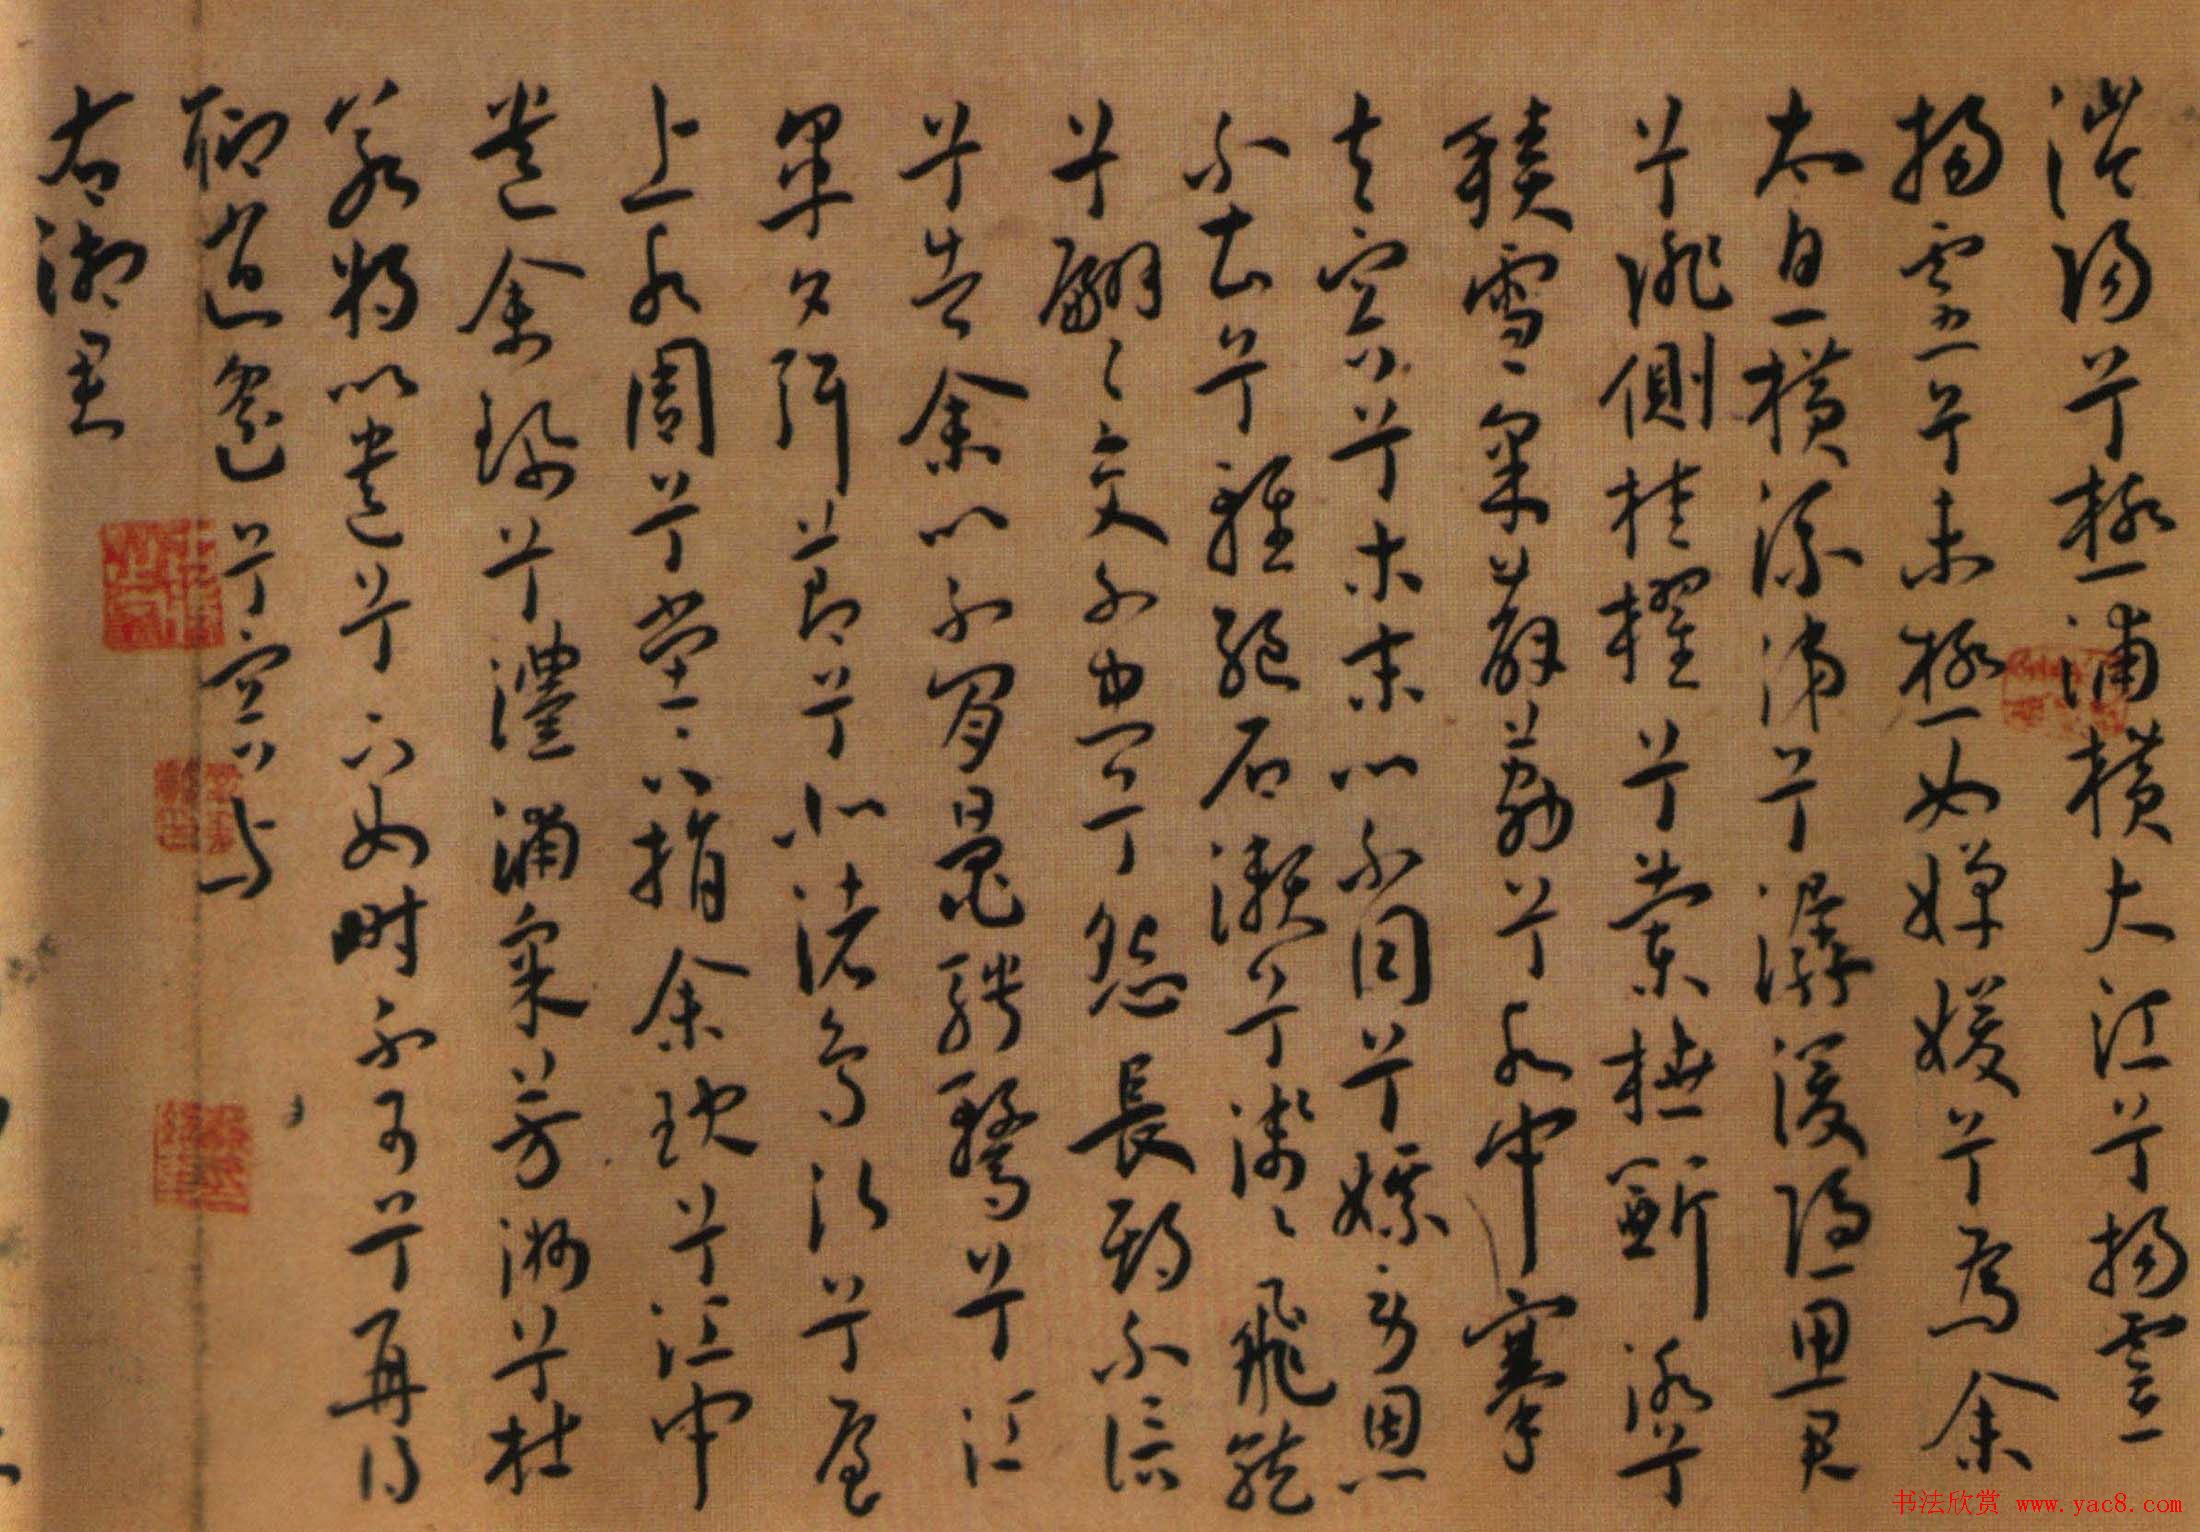 涔陽兮極浦橫大江兮揚靈
揚靈兮未極女嬋媛兮為余
太息橫流涕兮潺湲隱思君
兮陫側桂櫂兮蘭枻斲冰兮
積雪采薜荔兮水中搴
芙蓉兮木末心不同兮媒勞恩
不甚兮輕絕石瀨兮淺〻飛龍
兮翩〻交不忠兮怨長期不信
兮告余以不閒鼂騁騖兮江
皋夕弭節兮北渚鳥次兮屋
上水周兮堂下捐余玦兮江中
遺余珮兮澧浦采芳洲兮杜
若將以遺兮下女時不可兮再得
聊逍遙兮容與
右湘君
书法欣赏 www.yac8.com